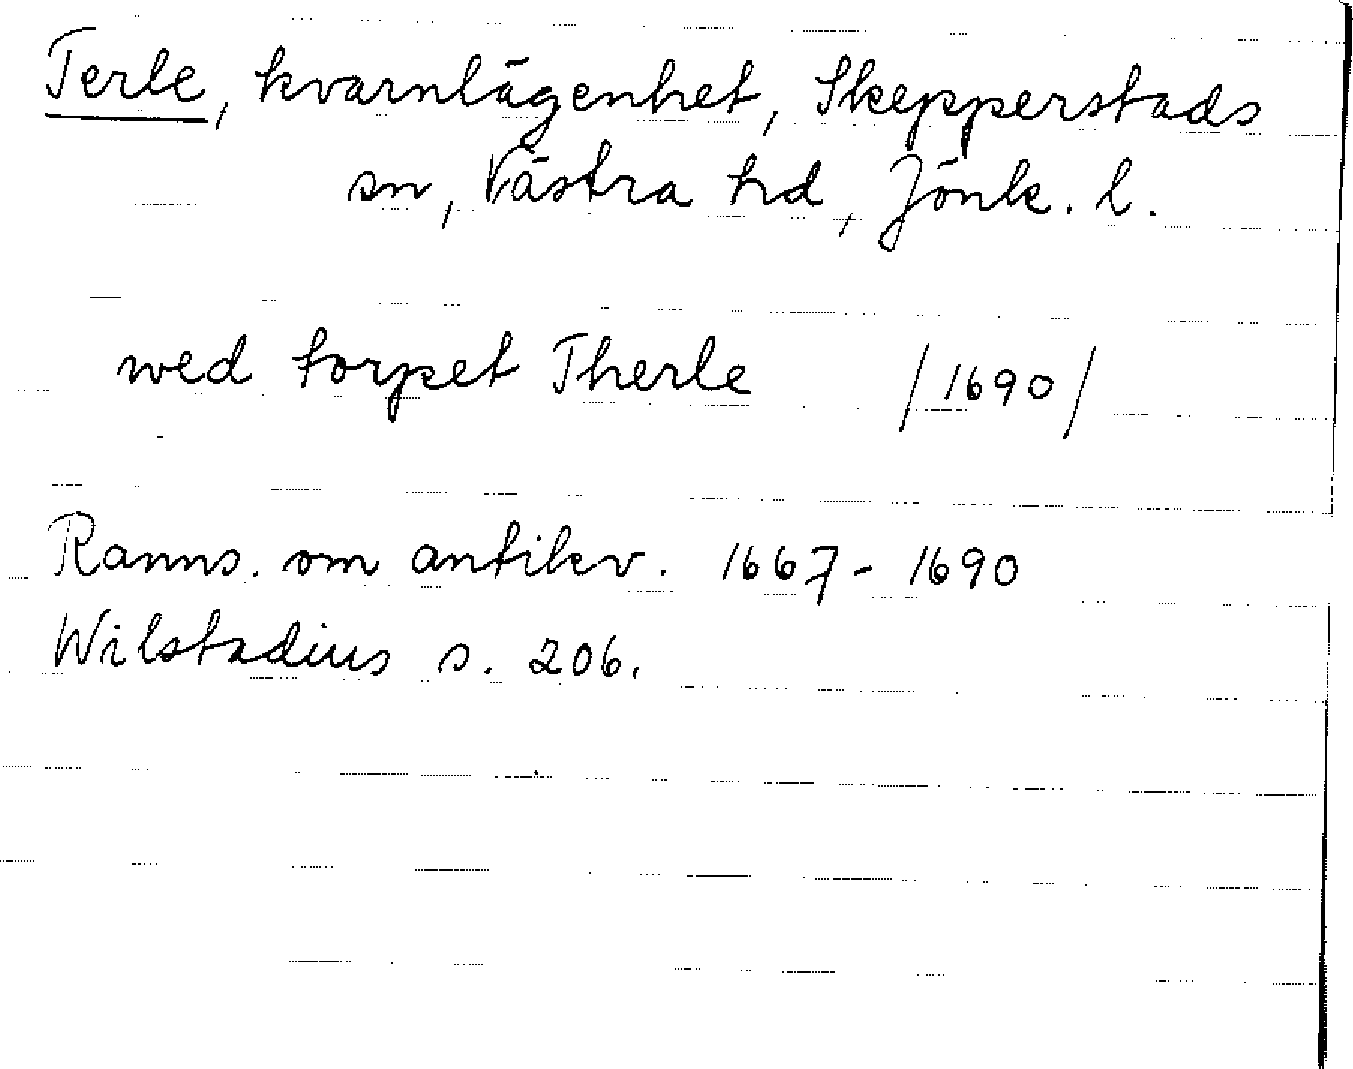 Terle, kvarnlägenhet, Skepperstads
sn, Västra hd, Jönk. l.
wed torpet Therle /1690/
Ranns. om antikv. 1667-1690
Wilstadius s. 206.